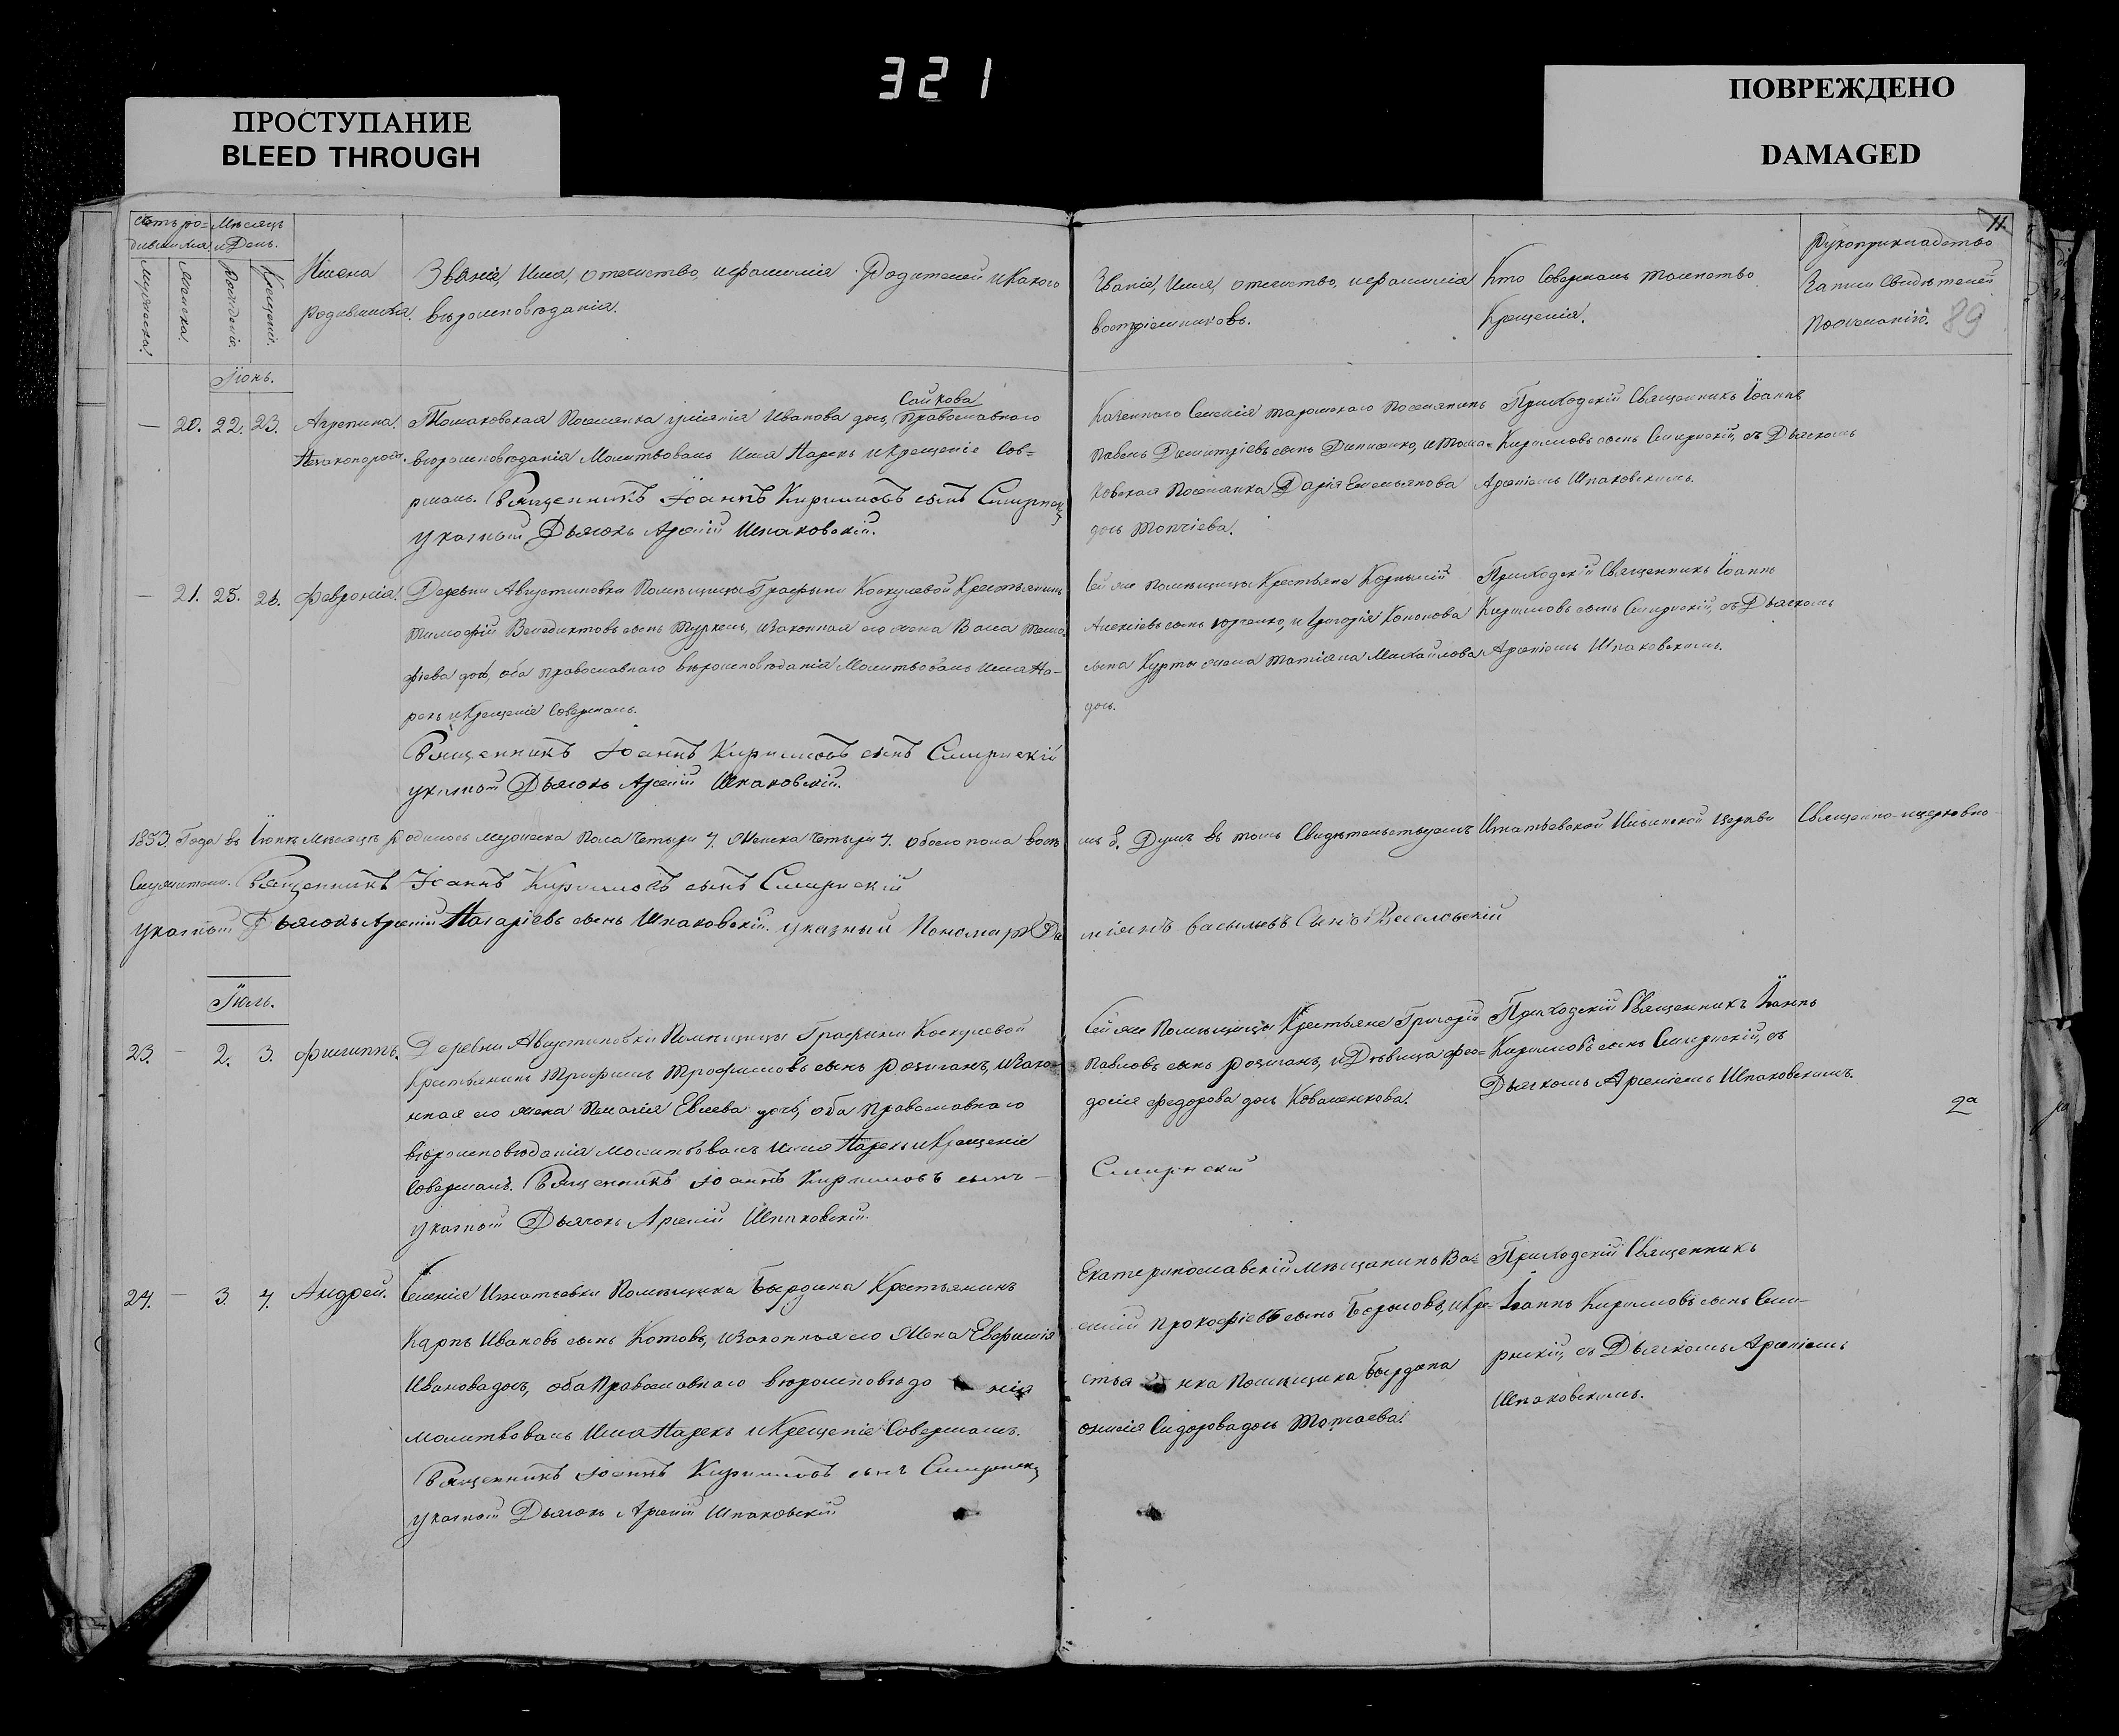 321
ПРОСТУПАНИЕ
BLEED THROUGH
ПОВРЕЖДЕНО
DAMAGED
11.
89
Счетъ ро-
дившихся
Мѣсяцъ
и День.
Мужеска.
Женска.
Рожденія.
Крещенія.
Имена
родившихся.
Званія, Имя, отечиство, и фамилія Родителей и Какого
вѣроисповѣданія.
Званія, Имя, отечиство, и фамилія
воспріемниковъ.
Кто Совершалъ таинство
Крещенія.
Рукоприкладство
Записи Свидѣтелей
По желанію.
Іюнь.
— 20. 22. 23. Агрепина.
Незаконорож.
Сайкова
Томаковская Поселянка Иванова дочь, Православнаго
вѣроисповѣданія Молитвовалъ Имя Нарекъ и Крещеніе Сов=
ршалъ. Священникъ Іоаннъ Кирилловъ сынъ Смирнскій
указной Дьячокъ Арсеній Шпаковскій.
Казенного Селенія поселянинъ
Павелъ Димитріевъ сынъ и Тома=
ковская Поселянка Дарія Емельянова
дочь Топчіева.
Приходскій Священникъ Іоаннъ
Кирилловъ сынъ Смирнскій, съ Дьячкомъ
Арсеніемъ Шпаковскимъ.
— 21. 25. 26. Февронія.
Деревни Августиновки Помѣщицы Графыни Коскулевой Крестьянинъ
Тимофей Венедиктовъ сынъ и Законная его жена Васа Тимо-
фіева дочь, оба православнаго вѣроисповѣданія Молитвовалъ имя На-
рекъ и Крещеніе Совершалъ.
Священникъ Іоаннъ Кирилловъ сынъ Смирнскій
указной Дьячокъ Арсеній Шпаковскій.
Сей же помѣщицы Крестьяне Корнылій
Алексіевъ сынъ Юрченко, и Григорія Кононова
сына Курты жена Татіана Михайлова
дочь.
Приходскій Священникъ Іоаннъ
Кирилловъ сынъ Смирнскій, съ Дьячкомъ
Арсеніемъ Шпаковскимъ.
1853. Года въ Іюнѣ Мѣсяцѣ родилось мужеска Пола Четыри 4. Женска Четыри 4. обоего пола восѣ
мъ 8. Душъ въ томъ Свидѣтельствуемъ Игнатьевской Ильинской церкви Священно-церковно-
Служители. Священникъ Іоаннъ Кирилловъ сынъ Смирнскій
указной Дьячокъ Арсеній Назаріевъ сынъ Шпаковскій. указный Пономарь Да
міянъ васыльевъ Сынъ Веселовскій
Іюль.
23. — 2. 3. Филиппъ.
Деревни Августиновки Помѣщицы Графыни Коскулевой
Крестьянинъ Трофимъ Трофимовъ сынъ и Зако-
нная его жена Пелагія Евсева дочь, оба Православнаго
вѣроисповѣданія молитвовалъ имя Нарекъ и Крещеніе
Совершалъ. Священникъ Іоаннъ Кирилловъ сынъ —
указной Дьячокъ Арсеній Шпаковскій.
Сей же Помѣщицы Крестьяне Григорій
Павловъ сынъ и Дѣвица Фео=
досія Федорова дочь Коваленкова.
Смирнскій
Приходскій Священникъ Іоаннъ
Кирилловъ сынъ Смирнскій, съ
Дьячкомъ Арсеніемъ Шпаковскимъ.
2а
24. — 3. 4. Андрей.
Селенія Игнатьевки Помѣщика Бырдина Крестьянинъ
Карпъ Ивановъ сынъ Котовъ, и Законная его Жена Евфимія
Иванова дочь, оба Православнаго вѣроисповѣда нія
молитвовалъ Имя Нарекъ и Крещеніе Совершалъ.
Священникъ Іоаннъ Кирилловъ сынъ Смирнскій
указной Дьячокъ Арсеній Шпаковскій
Екатеринославскій Мѣщанинъ Ва-
силій Прокофіевъ сынъ и Кре-
стья нка Помѣщика Бырдина
Сидорова дочь
Приходскій Священникъ
Іоаннъ Кирилловъ сынъ Сми-
рнскій, съ Дьячкомъ Арсеніемъ
Шпаковскимъ.